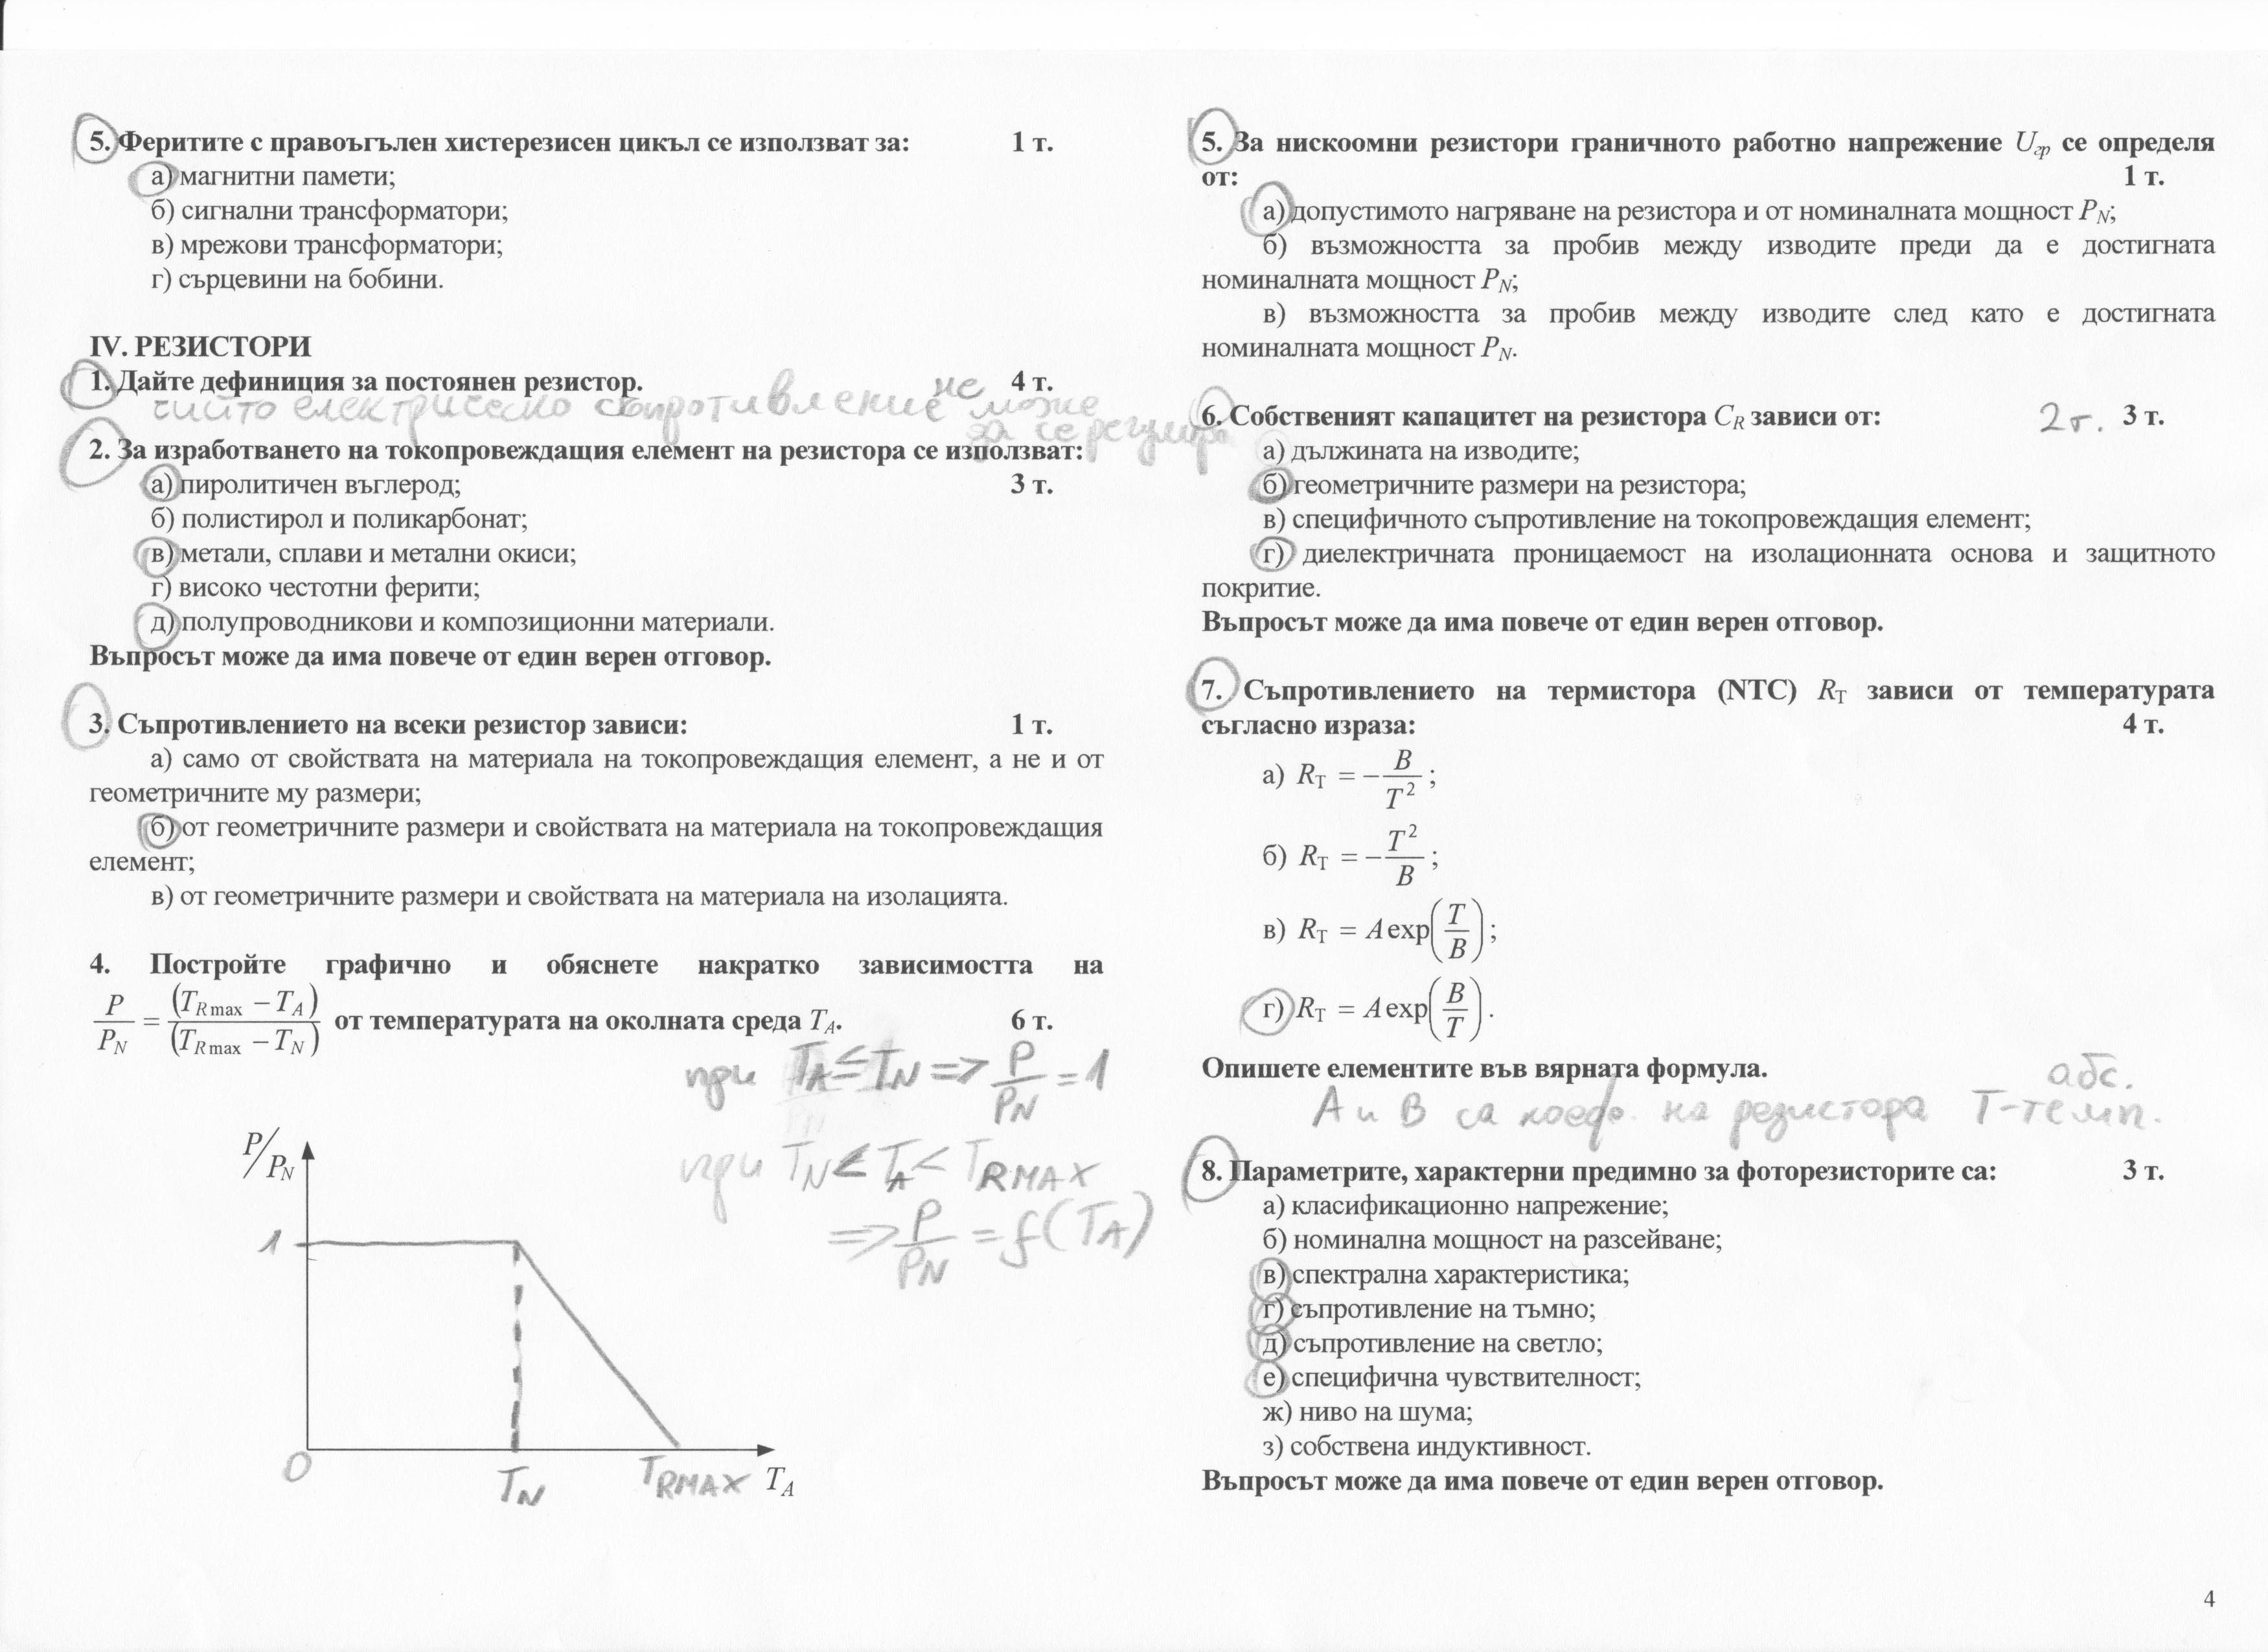 5. Феритите с правоъгълен хистерезисен цикъл се използват за: 1 т.
а) магнитни памети;
б) сигнални трансформатори;
в) мрежови трансформатори;
г) сърцевини на бобини.
IV. РЕЗИСТОРИ
1. Дайте дефиниция за постоянен резистор. 4 т.
чийто електрическо съпротивление не може
да се регулира
2. За изработването на токопровеждащия елемент на резистора се използват:
а) пиролитичен въглерод; 3 т.
б) полистирол и поликарбонат;
в) метали, сплави и метални окиси;
г) високо честотни ферити;
д) полупроводникови и композиционни материали.
Въпросът може да има повече от един верен отговор.
3. Съпротивлението на всеки резистор зависи: 1 т.
а) само от свойствата на материала на токопровеждащия елемент, а не и от
геометричните му размери;
б) от геометричните размери и свойствата на материала на токопровеждащия
елемент;
в) от геометричните размери и свойствата на материала на изолацията.
4. Постройте графично и обяснете накратко зависимостта на
P/P_N = (T_Rmax − T_A)/(T_Rmax − T_N) от температурата на околната среда T_A. 6 т.
при T_A ≤ T_N => P/P_N = 1
при T_N ≤ T_A < T_RMAX
=> P/P_N = f(T_A)
P/P_N
1
0 T_N T_RMAX T_A
5. За нискоомни резистори граничното работно напрежение U_гр се определя
от: 1 т.
а) допустимото нагряване на резистора и от номиналната мощност P_N;
б) възможността за пробив между изводите преди да е достигната
номиналната мощност P_N;
в) възможността за пробив между изводите след като е достигната
номиналната мощност P_N.
6. Собственият капацитет на резистора C_R зависи от: 2т. 3 т.
а) дължината на изводите;
б) геометричните размери на резистора;
в) специфичното съпротивление на токопровеждащия елемент;
г) диелектричната проницаемост на изолационната основа и защитното
покритие.
Въпросът може да има повече от един верен отговор.
7. Съпротивлението на термистора (NTC) R_T зависи от температурата
съгласно израза: 4 т.
а) R_T = −B/T²;
б) R_T = −T²/B;
в) R_T = A exp(T/B);
г) R_T = A exp(B/T).
Опишете елементите във вярната формула.
абс.
А и В са коеф. на резистора Т-темп.
8. Параметрите, характерни предимно за фоторезисторите са: 3 т.
а) класификационно напрежение;
б) номинална мощност на разсейване;
в) спектрална характеристика;
г) съпротивление на тъмно;
д) съпротивление на светло;
е) специфична чувствителност;
ж) ниво на шума;
з) собствена индуктивност.
Въпросът може да има повече от един верен отговор.
4